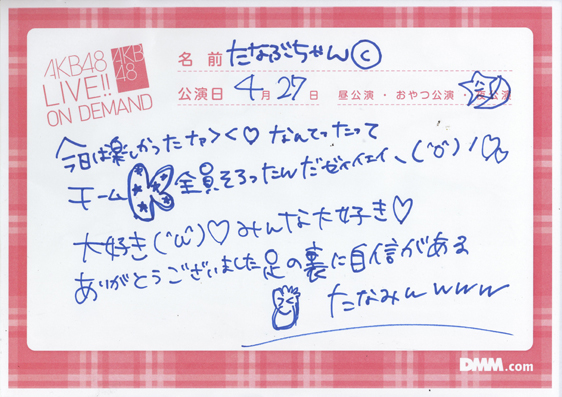 AKB48
LIVE!!
ON DEMAND
AKB
48
名前 たなぶちゃんⓒ
公演日 4月27日 昼公演・おやつ公演・夜公演
今日は楽しかったナァ><♡なんてったって
チームK全員そろったんだゼィイェイ、(^o^)ノ♡♡
大好き(^ω^)♡みんな大好き♡
ありがとうございました足の裏に自信がある
たなみんwww
DMM.com